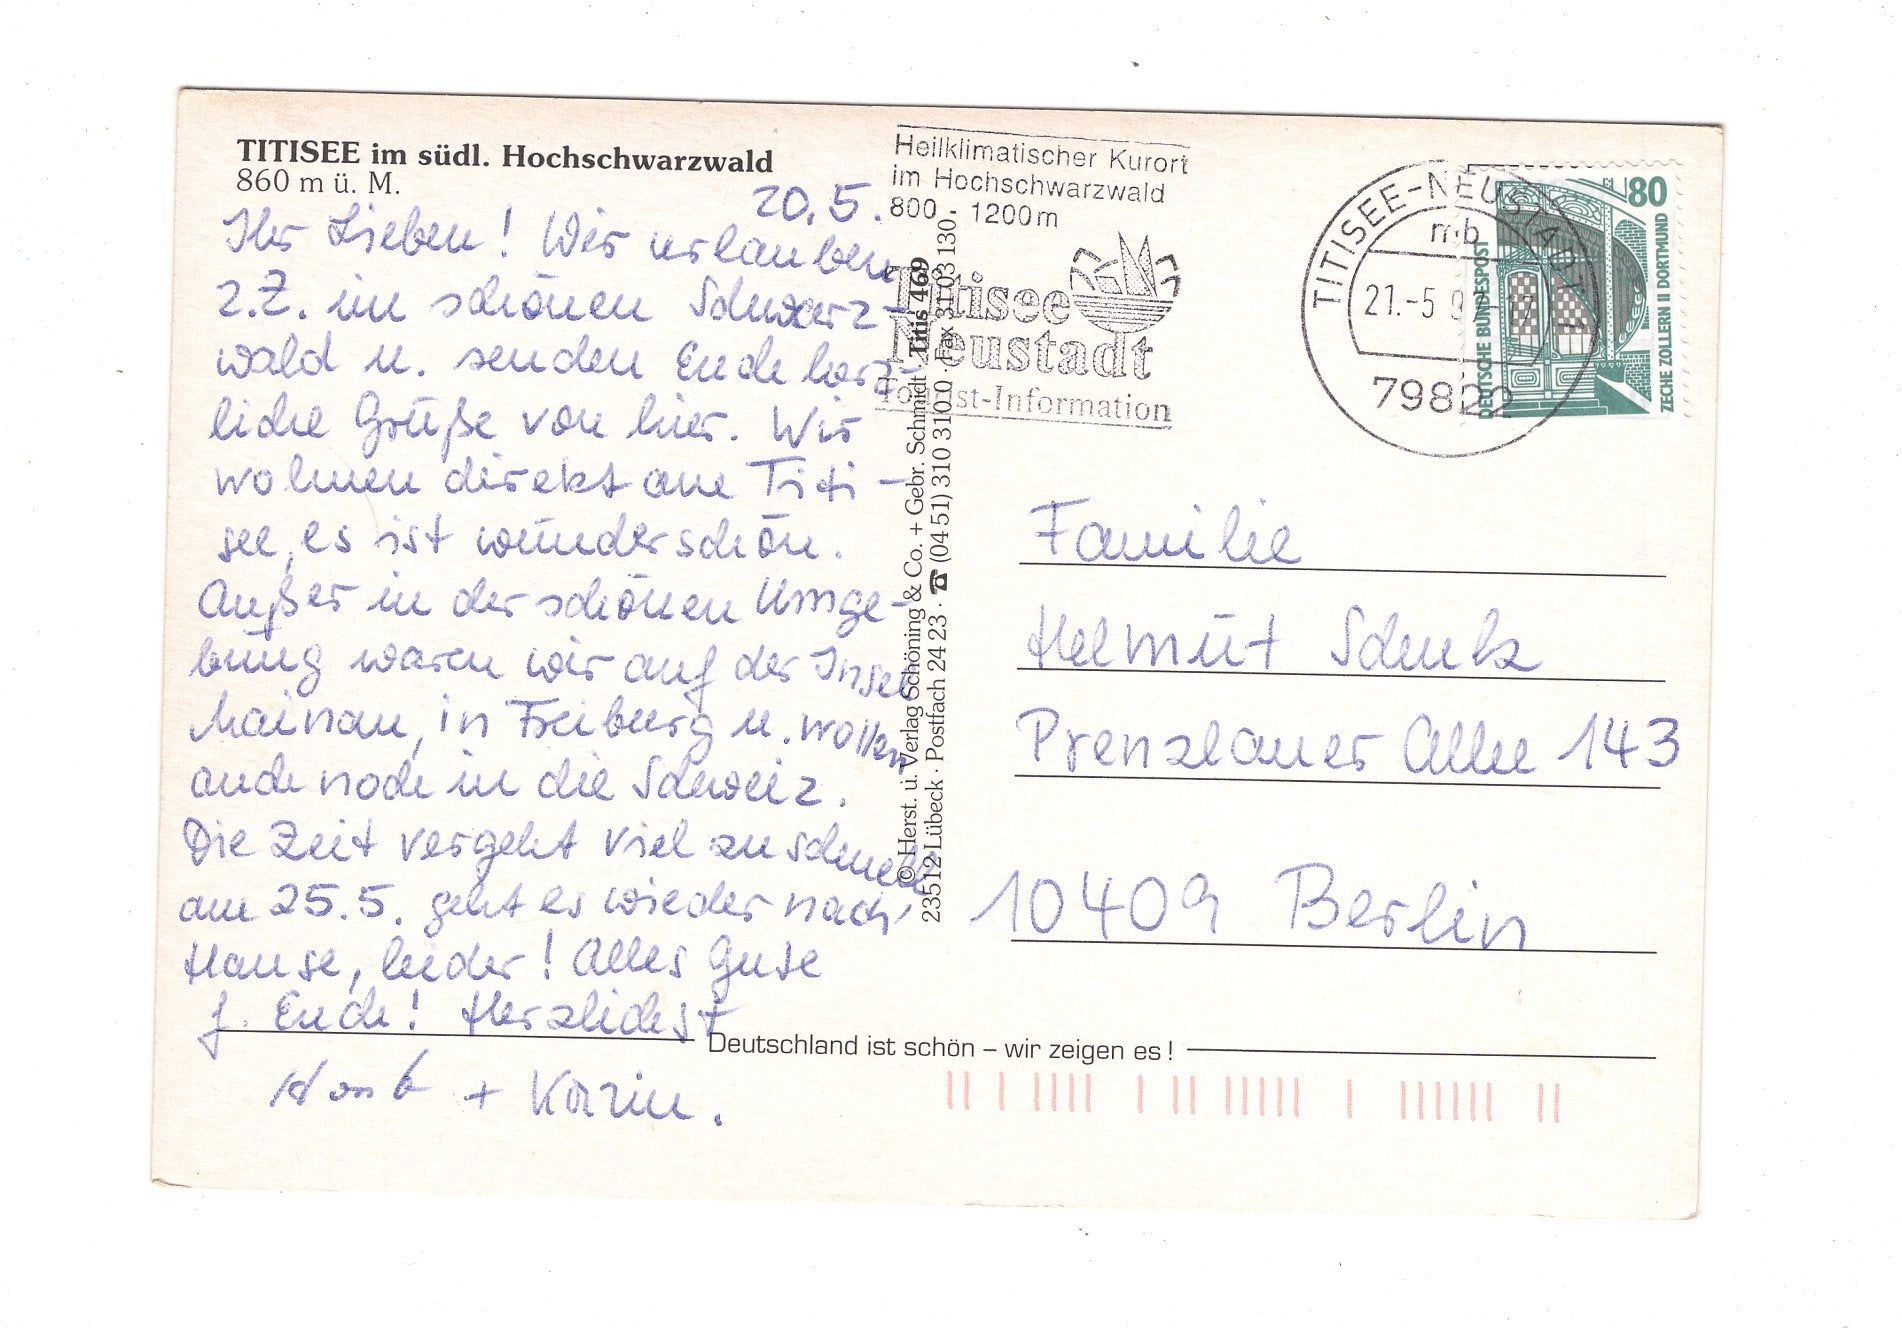 TITISEE im südl. Hochschwarzwald
860 m ü. M.
20.5.
Ihr Lieben! Wir urlauben
z.Z. im schönen Schwarz-
wald u. senden Euch herz-
liche Grüße von hier. Wir
wohnen direkt am Titi-
see, es ist wunderschön.
Außer in der schönen Umge-
bung waren wir auf der Insel
Mainau, in Freiburg u. wollen
auch noch in die Schweiz.
Die Zeit vergeht viel zu schnell
am 25.5. geht es wieder nach
Hause, leider! Alles Gute
f. Euch! Herzlichst
+ Karin.
Heilklimatischer Kurort
im Hochschwarzwald
800 - 1200m
Titisee
Neustadt
Tourist-Information
© Herst. u. Verlag Schöning & Co. + Gebr. Schmidt · Titis 469
23512 Lübeck · Postfach 24 23 · ☎ (04 51) 310 310 0 · Fax 3103130
TITISEE-NEUSTADT 1
mb
21.-5.9
79822
80
DEUTSCHE BUNDESPOST
ZECHE ZOLLERN II DORTMUND
Familie
Helmut Schulz
Prenzlauer Allee 143
10409 Berlin
Deutschland ist schön – wir zeigen es!